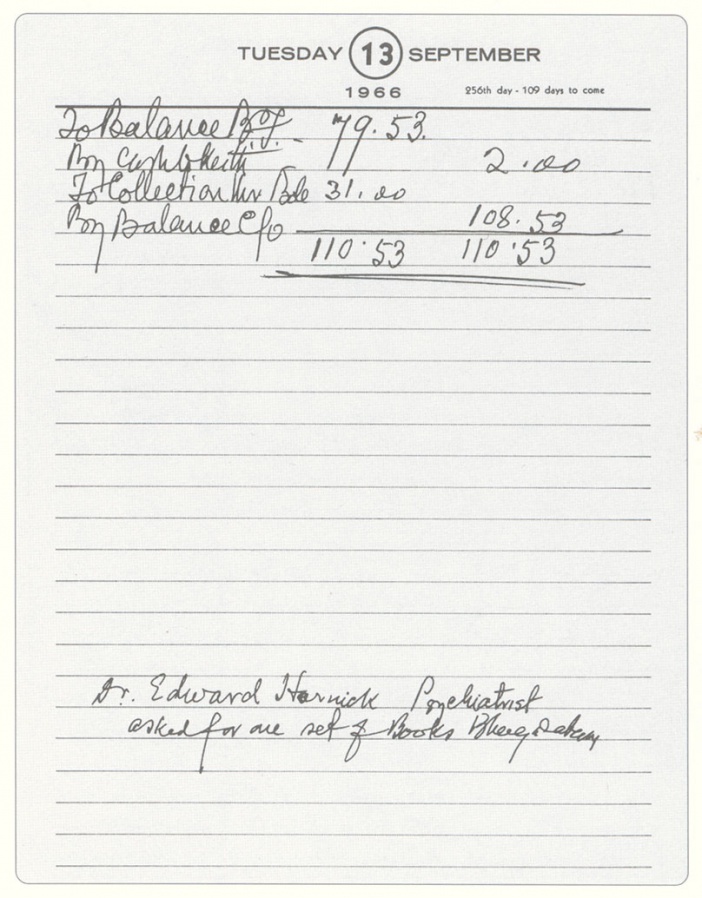 TUESDAY 13 SEPTEMBER
1966 256th day - 109 days to come
To Balance B/f 79.53
By Cash to Keith 2.00
To Collection 31.00
By Balance C/o 108.53
110.53 110.53
Dr. Edward Hornick Psychiatrist
asked for one set of Books Bhagwatam